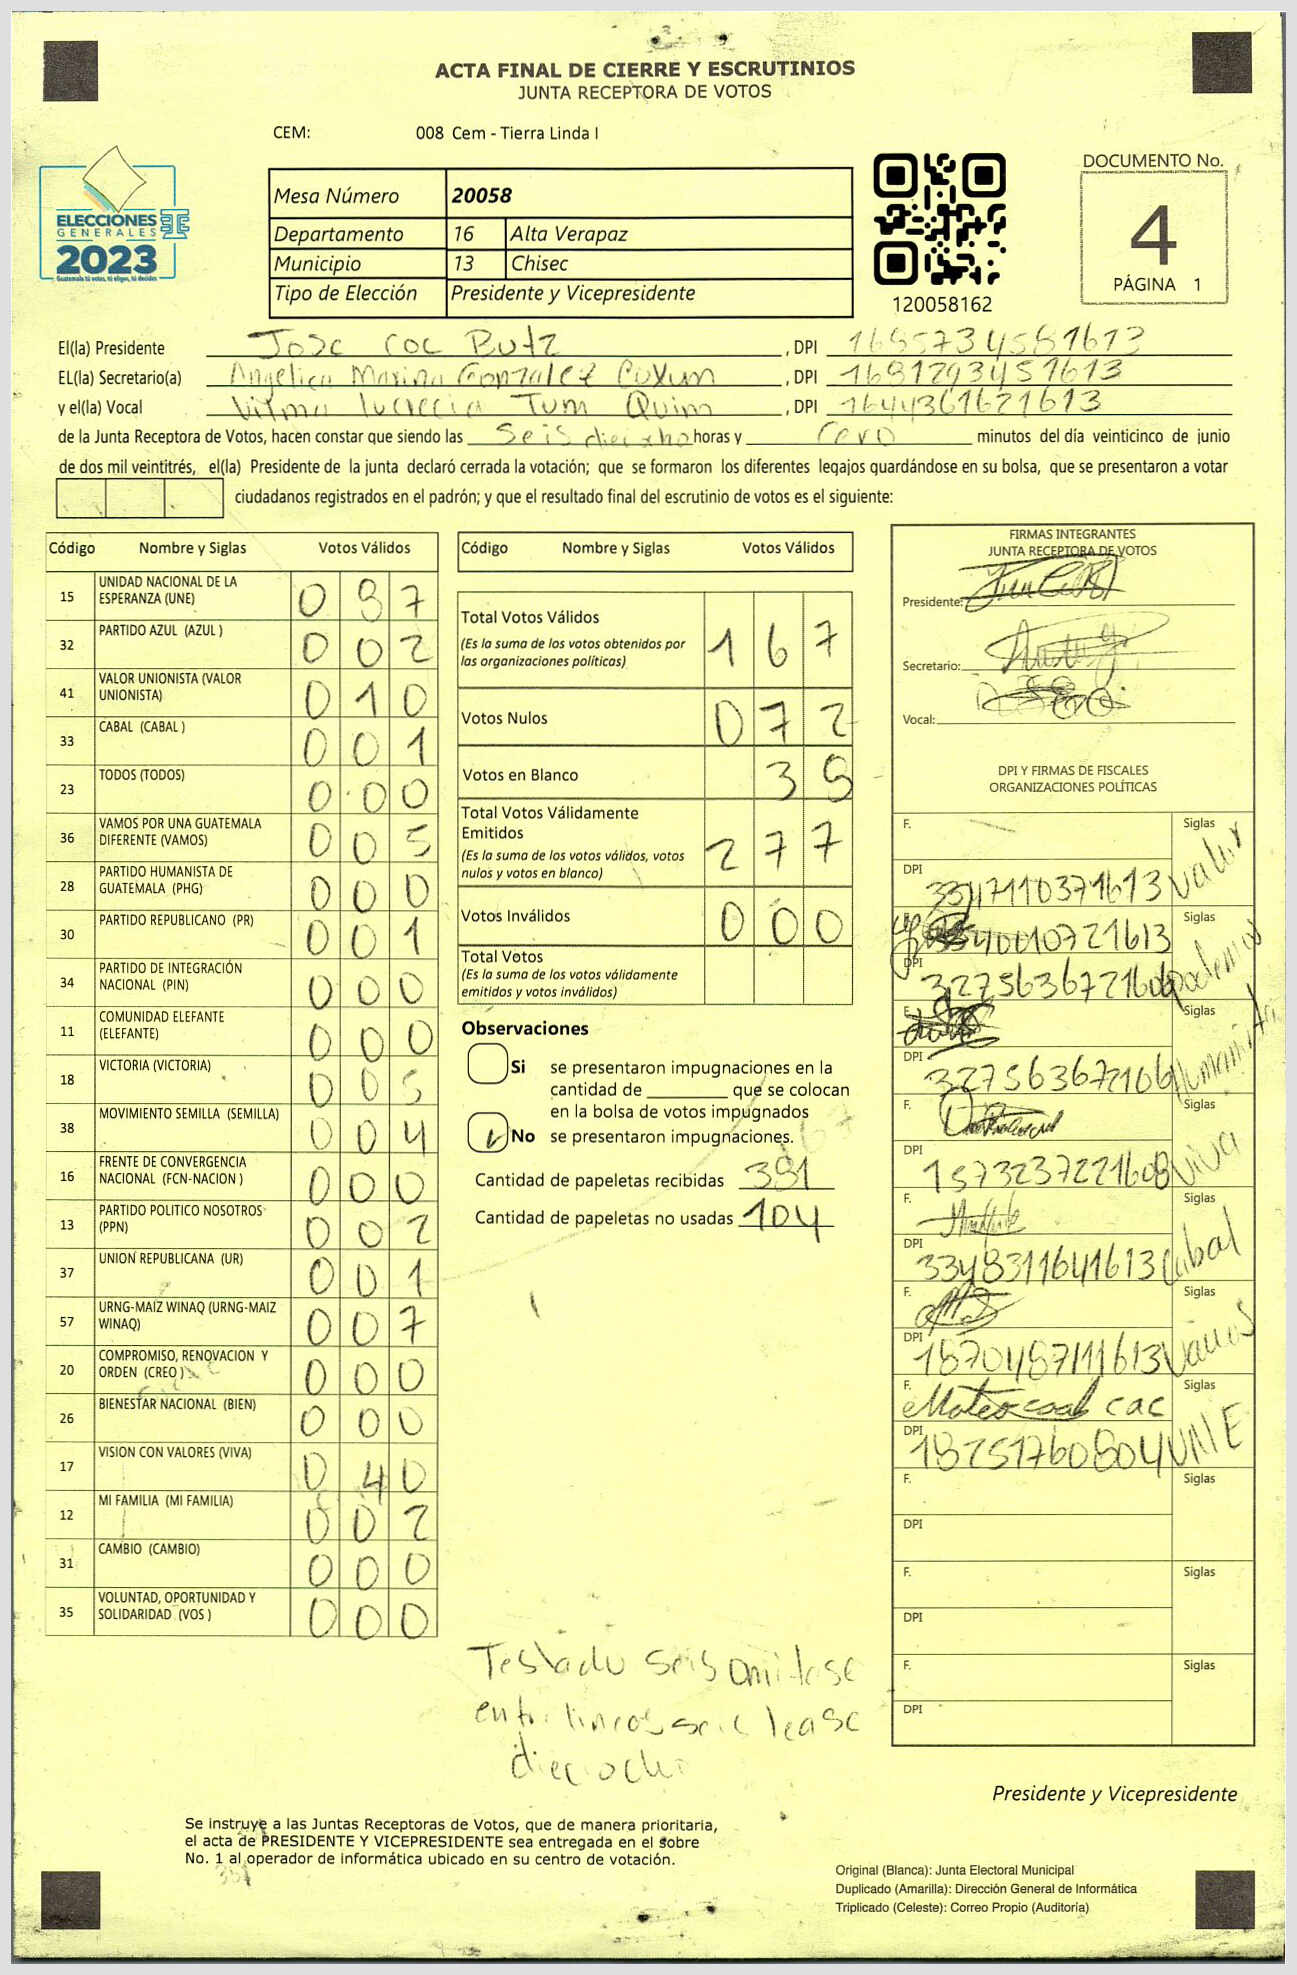 ACTA FINAL DE CIERRE Y ESCRUTINIOS
JUNTA RECEPTORA DE VOTOS
CEM: 008 Cem - Tierra Linda I
ELECCIONES
GENERALES
2023
Guatemala tú votas, tú eliges, tú decides
Mesa Número 20058
Departamento 16 Alta Verapaz
Municipio 13 Chisec
Tipo de Elección Presidente y Vicepresidente
120058162
DOCUMENTO No.
4
PÁGINA 1
El(la) Presidente Jose coc Butz , DPI
EL(la) Secretario(a) Angelica Gonzalez , DPI
y el(la) Vocal Vilma lucrecia Tum Quim , DPI 1644361621613
de la Junta Receptora de Votos, hacen constar que siendo las Seis dieciocho horas y Cero minutos del día veinticinco de junio
de dos mil veintitrés, el(la) Presidente de la junta declaró cerrada la votación; que se formaron los diferentes legajos guardándose en su bolsa, que se presentaron a votar
ciudadanos registrados en el padrón; y que el resultado final del escrutinio de votos es el siguiente:
Código Nombre y Siglas Votos Válidos
15 UNIDAD NACIONAL DE LA ESPERANZA (UNE) 0 8 7
32 PARTIDO AZUL (AZUL ) 0 0 2
41 VALOR UNIONISTA (VALOR UNIONISTA) 0 1 0
33 CABAL (CABAL ) 0 0 1
23 TODOS (TODOS) 0 0 0
36 VAMOS POR UNA GUATEMALA DIFERENTE (VAMOS) 0 0 5
28 PARTIDO HUMANISTA DE GUATEMALA (PHG) 0 0 0
30 PARTIDO REPUBLICANO (PR) 0 0 1
34 PARTIDO DE INTEGRACIÓN NACIONAL (PIN) 0 0 0
11 COMUNIDAD ELEFANTE (ELEFANTE) 0 0 0
18 VICTORIA (VICTORIA) 0 0 5
38 MOVIMIENTO SEMILLA (SEMILLA) 0 0 4
16 FRENTE DE CONVERGENCIA NACIONAL (FCN-NACION ) 0 0 0
13 PARTIDO POLITICO NOSOTROS (PPN) 0 0 2
37 UNION REPUBLICANA (UR) 0 0 1
57 URNG-MAIZ WINAQ (URNG-MAIZ WINAQ) 0 0 7
20 COMPROMISO, RENOVACION Y ORDEN (CREO ) 0 0 0
26 BIENESTAR NACIONAL (BIEN) 0 0 0
17 VISION CON VALORES (VIVA) 0 4 0
12 MI FAMILIA (MI FAMILIA) 0 0 2
31 CAMBIO (CAMBIO) 0 0 0
35 VOLUNTAD, OPORTUNIDAD Y SOLIDARIDAD (VOS ) 0 0 0
Código Nombre y Siglas Votos Válidos
Total Votos Válidos 1 6 7
(Es la suma de los votos obtenidos por
las organizaciones políticas)
Votos Nulos 0 7 2
Votos en Blanco 3 8
Total Votos Válidamente
Emitidos 2 7 7
(Es la suma de los votos válidos, votos
nulos y votos en blanco)
Votos Inválidos 0 0 0
Total Votos
(Es la suma de los votos válidamente
emitidos y votos inválidos)
Observaciones
Si se presentaron impugnaciones en la
cantidad de ________ que se colocan
en la bolsa de votos impugnados
No se presentaron impugnaciones.
Cantidad de papeletas recibidas 381
Cantidad de papeletas no usadas 104
Testado seis omitase
entrelineas seis lease
dieciocho
FIRMAS INTEGRANTES
JUNTA RECEPTORA DE VOTOS
Presidente:
Secretario:
Vocal:
DPI Y FIRMAS DE FISCALES
ORGANIZACIONES POLÍTICAS
F. Siglas
DPI 3347110371613 Valor
Siglas
DPI Podemos
F. Siglas
DPI Humanista
F. Siglas
DPI 1573237221608 Viva
F. Siglas
DPI 3348311641613 Cabal
F. Siglas
DPI Vamos
F. Mateo caal cac Siglas
DPI UNE
F. Siglas
DPI
F. Siglas
DPI
F. Siglas
DPI
Presidente y Vicepresidente
Se instruye a las Juntas Receptoras de Votos, que de manera prioritaria,
el acta de PRESIDENTE Y VICEPRESIDENTE sea entregada en el sobre
No. 1 al operador de informática ubicado en su centro de votación.
Original (Blanca): Junta Electoral Municipal
Duplicado (Amarilla): Dirección General de Informática
Triplicado (Celeste): Correo Propio (Auditoría)